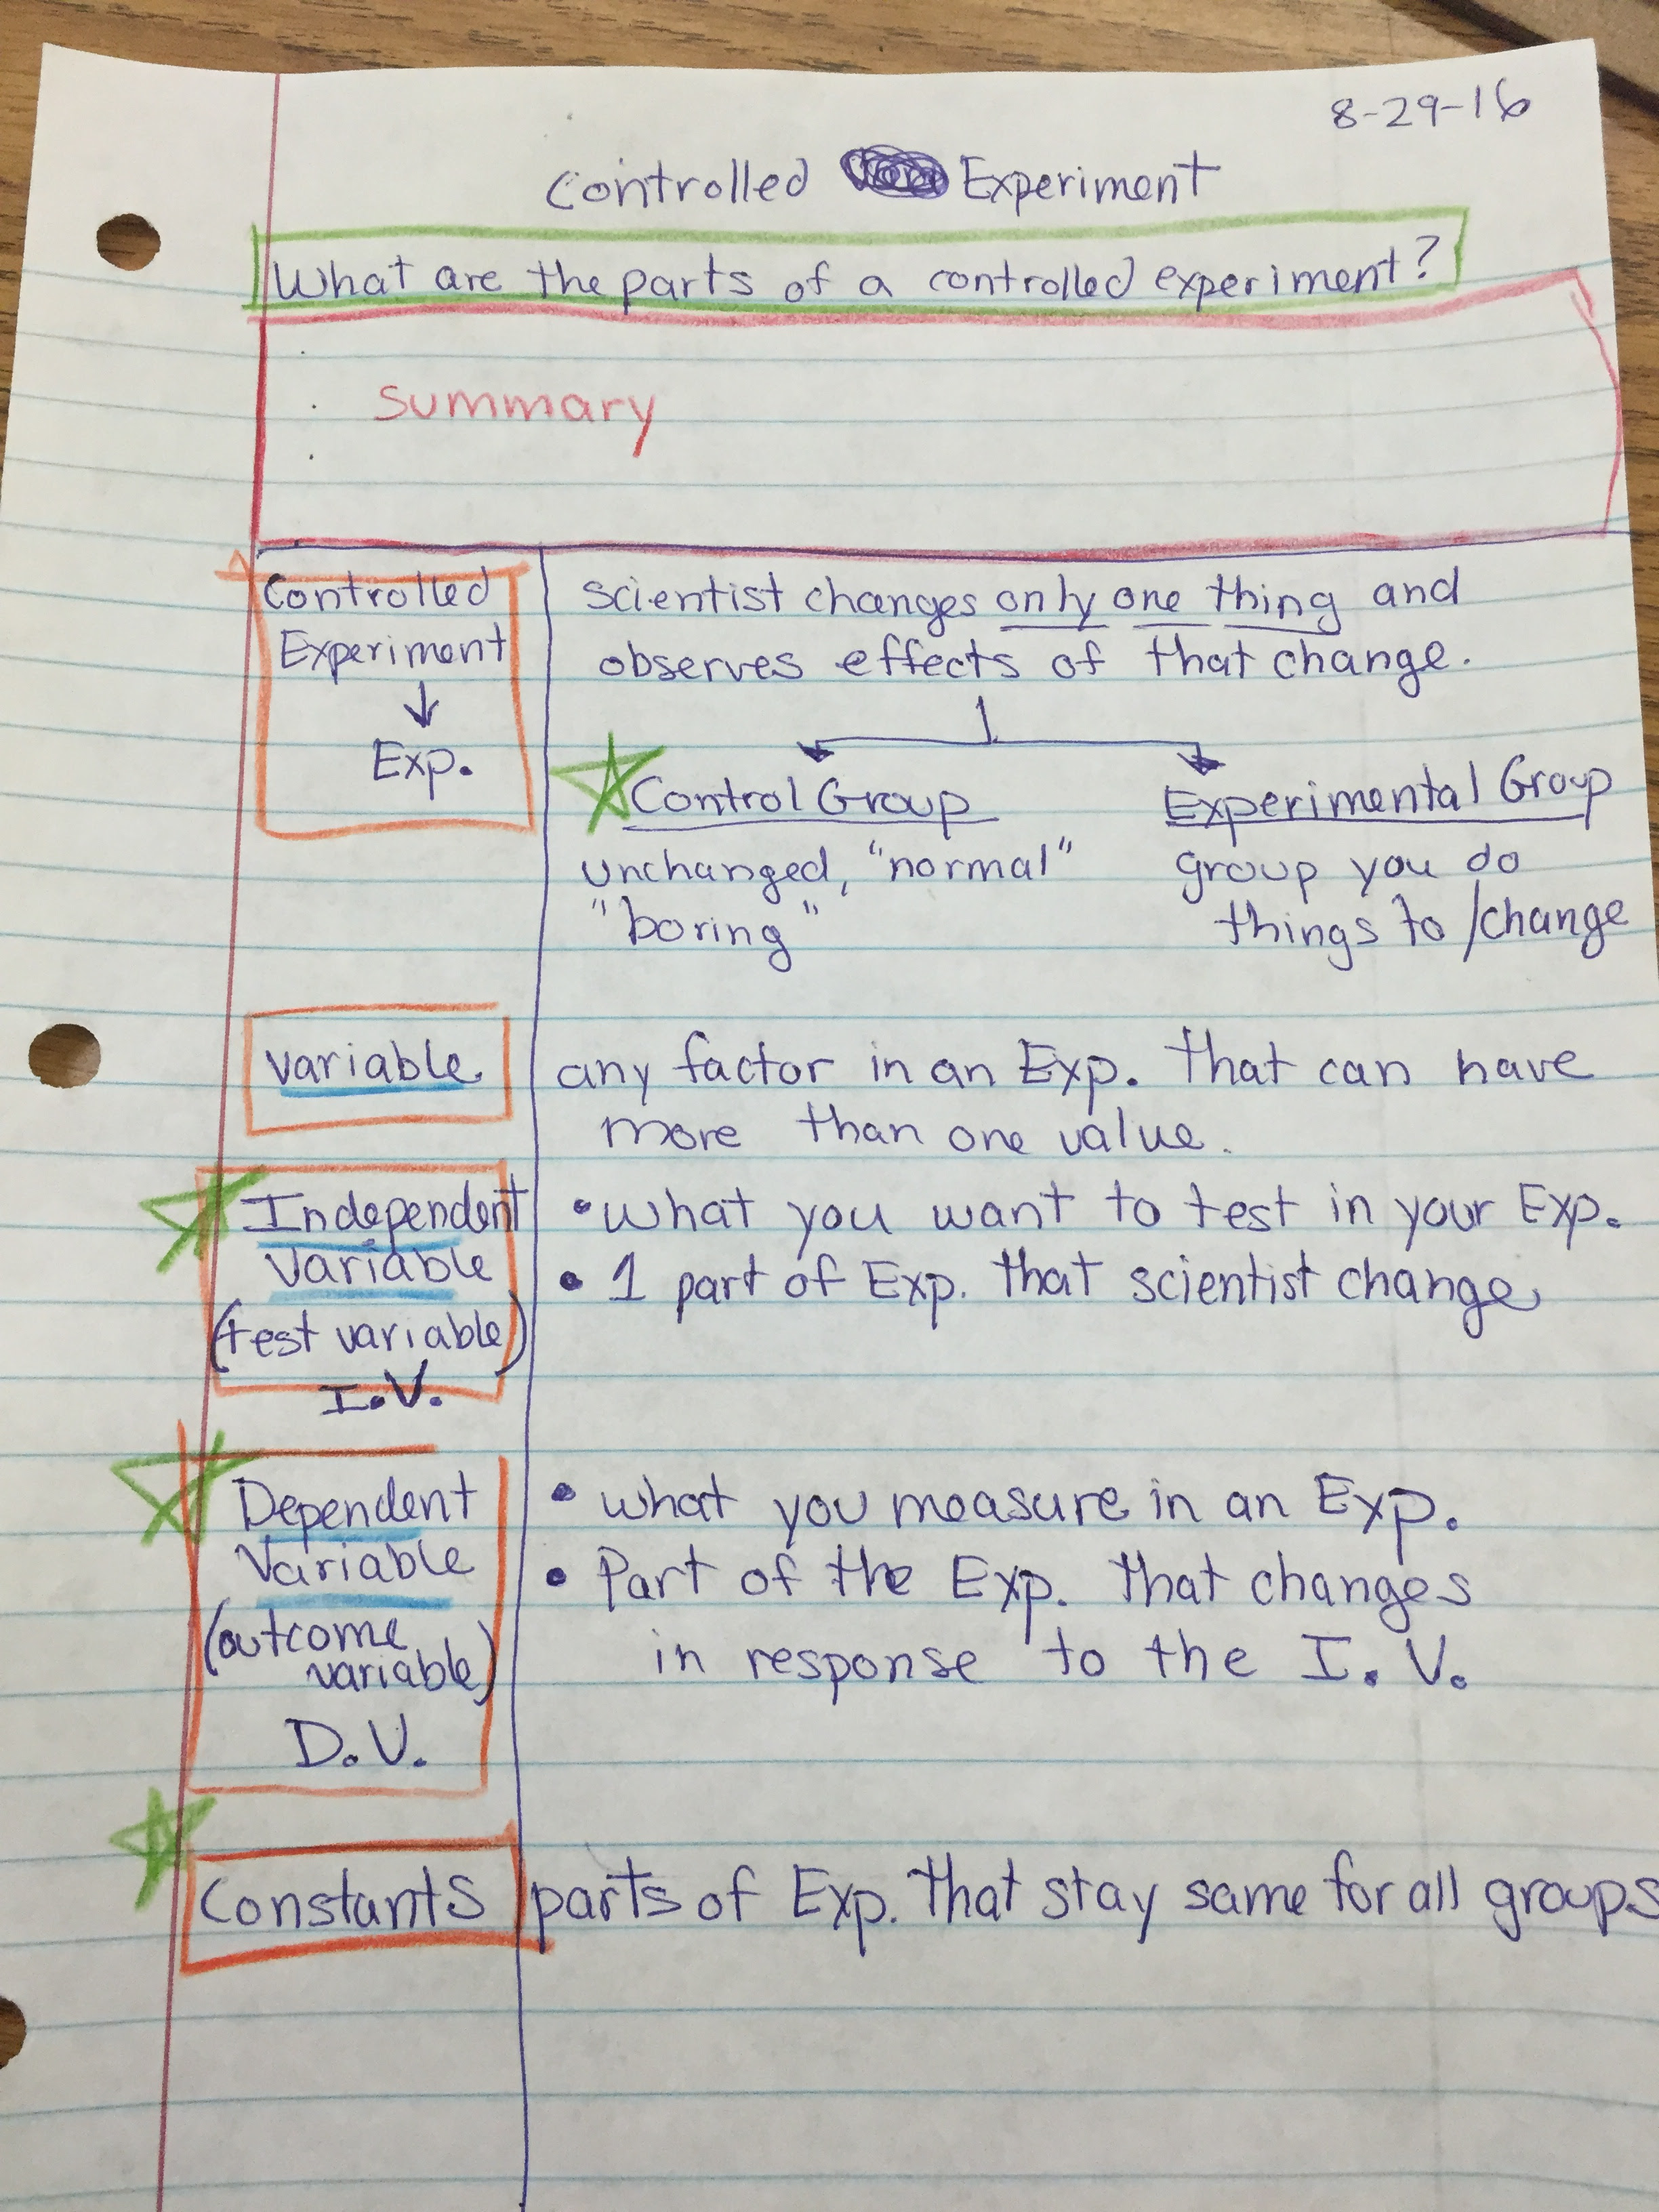 8-29-16
Controlled Experiment
What are the parts of a controlled experiment?
Summary
Controlled
Experiment
↓
Exp.
scientist changes only one thing and
observes effects of that change.
Control Group
unchanged, "normal"
"boring"
Experimental Group
group you do
things to /change
variable
any factor in an Exp. that can have
more than one value.
Independent
Variable
(test variable)
I.V.
• what you want to test in your Exp.
• 1 part of Exp. that scientist change
Dependent
Variable
(outcome
variable)
D.V.
• what you measure in an Exp.
• Part of the Exp. that changes
in response to the I.V.
Constants
parts of Exp. that stay same for all groups